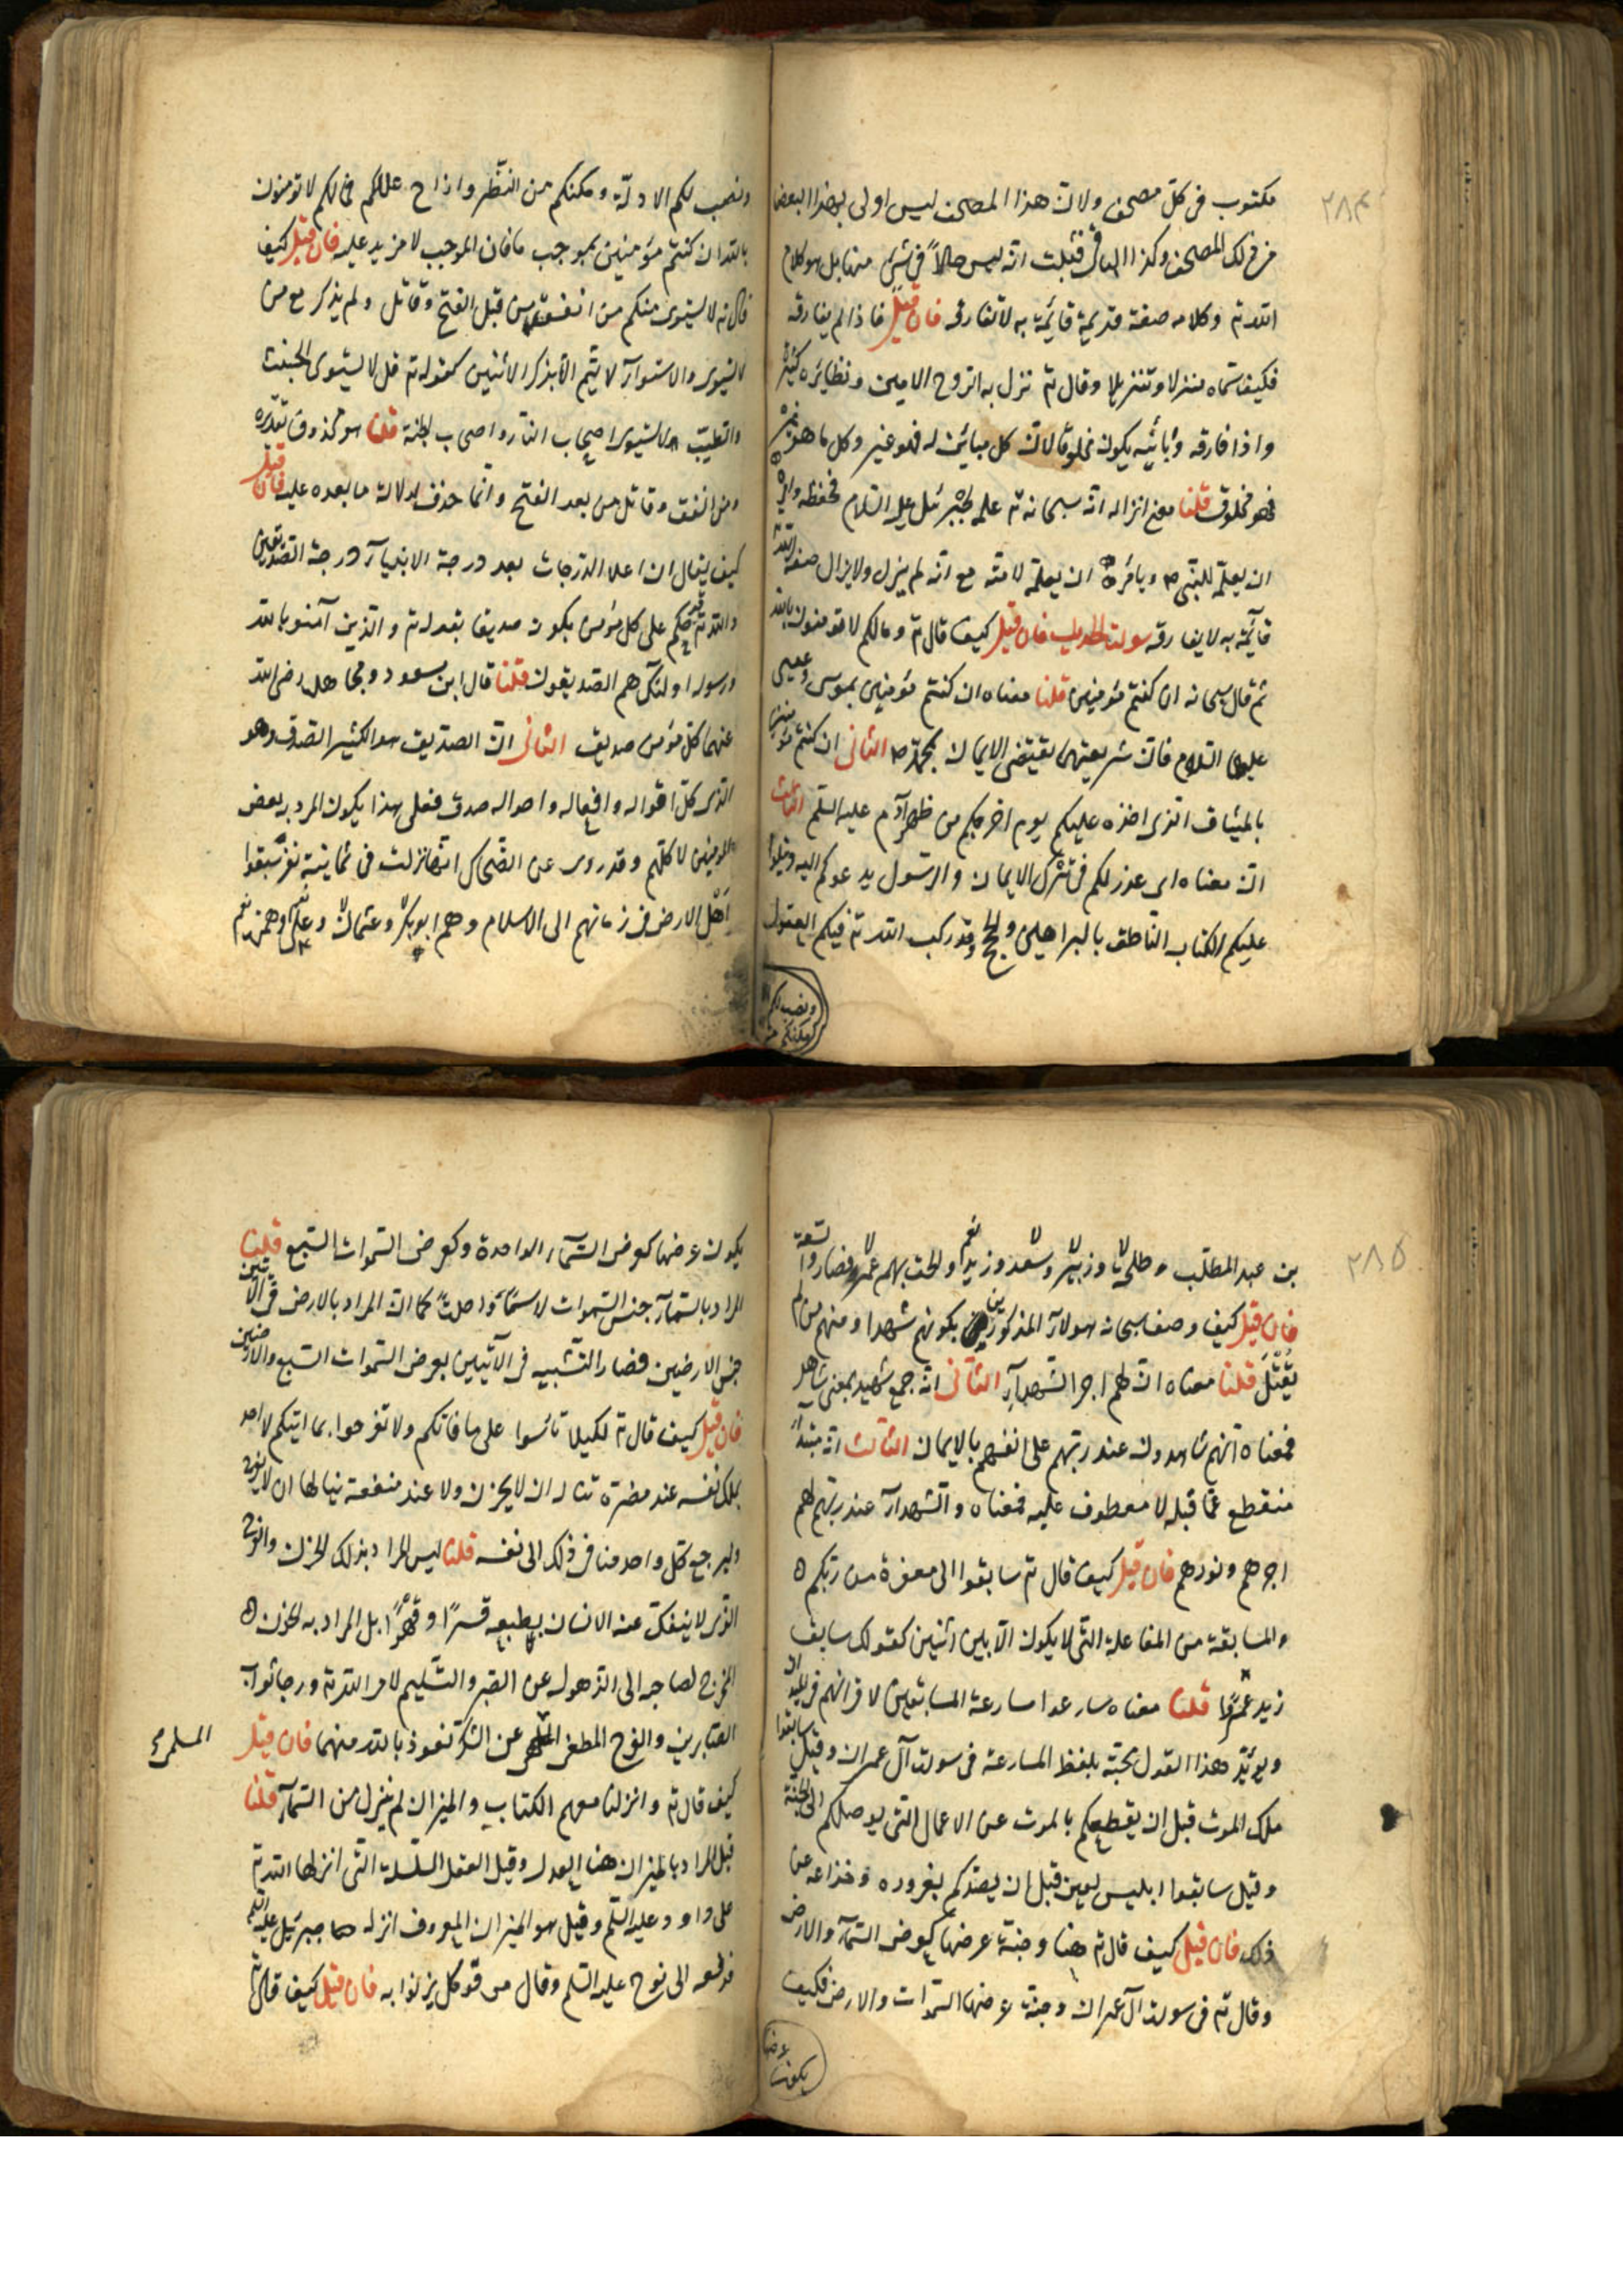 ٢٨٤
مكتوب فى كل مصحف ولان هذا المصحف ليس اولى بهذا البعض
من ذلك المصحف وكذا الباقى فثبت انه ليس حالاً فى شئ منها بل هو كلام
الله تع وكلامه صفة قديمة قايمة به لا تفارقه فان قيل فاذا لم يفارقه
فكيف سماه منزلا وتنزيلا وقال تع نزل به الروح الامين ونظائره كثيرة
واذا فارقه وبائنه يكون مخلوقا لان كل مباين له فهو غير وكل ما هو غيره
فهو مخلوق قلنا معنى انزاله انه سبحانه تع علمه لجبرئيل عليه السلام فحفظه وامره
ان يعلمه للنبى ص ويأمره ان يعلمه لامته مع انه لم يزل ولا يزال صفة لله تع
قايمة به لا يفارقه سورة الحديد فان قيل كيف قال تع ومالكم لا تؤمنون بالله
ثم قال سبحانه ان كنتم مؤمنين قلنا معناه ان كنتم مؤمنين بموسى وعيسى
عليهما السلام فان شريعتهما يقتضى الايمان بمحمد ص الثانى ان كنتم مؤمنين
بالميثاق الذى اخذه عليكم يوم اخرجكم من ظهر آدم عليه السلم الثالث
ان معناه اى عذر لكم فى ترك الايمان والرسول يدعوكم اليه ويتلوا
عليكم الكتاب الناطق بالبراهين والحجج وقد ركب الله تع فيكم العقول
ونصب لكم
ومكنكم من
ونصب لكم الادلة ومكنكم من النظر وازاح عللكم فما لكم لا تؤمنون
بالله ان كنتم مؤمنين بموجب ما فان الموجب لا مزيد عليه فان قيل كيف
قال تع لا يستوى منكم من انفق من قبل الفتح وقاتل ولم يذكر مع من
لا يستوى والاستوآء لا يتم الا بذكر الاثنين كقوله تع قل لا يستوى الخبيث
والطيب ولا يستوى اصحاب النار واصحاب الجنة قلنا هو محذوف تقديره
ومن انفق وقاتل من بعد الفتح وانما حذف لدلالة ما بعده عليه فان قيل
كيف يقال ان اعلا الدرجات بعد درجة الانبيآء درجة الصديقين
والله تع قد حكم على كل مؤمن بكونه صديقا بقوله تع والذين آمنوا بالله
ورسوله اولئك هم الصديقون قلنا قال ابن مسعود ومجاهد رضى الله
عنهما كل مؤمن صديق الثانى ان الصديق هو الكثير الصدق وهو
الذى كل اقواله وافعاله واحواله صدق فعلى هذا يكون المراد بعض
المؤمنين لا كلهم وقد روى عن الضحاك انها نزلت فى ثمانية نفر سبقوا
اهل الارض فى زمانهم الى الاسلام وهم ابو بكر وعثمان وعلى وحمزة
٢٨٥
بن عبد المطلب وطلحة وزبير وسعد وزيد والحق بهم عمر فصاروا تسعة
فان قيل كيف وصف سبحانه هولآء المذكورين بكونهم شهدا ومنهم من لم
يُقْتَل قلنا معناه ان لهم اجر الشهدآء الثانى انه جمع شهيد بمعنى شاهد
فمعناه انهم شاهدون عند ربهم على انفسهم بالايمان الثالث انه مبتدأ
منقطع عما قبله لا معطوف عليه فمعناه والشهدآء عند ربهم لهم
اجرهم ونورهم فان قيل كيف قال تع سابقوا الى مغفرة من ربكم
والمسابقة من المفاعلة التى لا يكون الا بين اثنين كقولك سابق
زيد عمرًا قلنا معناه سارعوا مسارعة المسابقين لاقرانهم فى الميدان
ويؤيد هذا القول مجيئه بلفظ المسارعة فى سورت آل عمران وقيل سابقوا
ملك الموت قبل ان يقطعكم بالموت عن الاعمال التى يوصلكم الى الجنة
وقيل سابقوا ابليس لعين قبل ان يصدكم بغروره وخداعه عن
ذلك فان قيل كيف قال تع هنا وجنة عرضها كعرض السمآء والارض
وقال تع فى سورت آل عمران وجنة عرضها السموات والارض فكيف
يكون
عرضها
يكون عرضها كعرض السمآء الواحدة وكعرض السموات السبع قلنا
المراد بالسمآء جنس السموات لا سمآء واحدة كما ان المراد بالارض فى الآيتين
جنس الارضين فصار التشبيه فى الآيتين بعرض السموات السبع والارضين
فان قيل كيف قال تع لكيلا تاسوا على ما فاتكم ولا تفرحوا بما اتيكم لا احد
يملك نفسه عند مضرة تناله ان لا يحزن ولا عند منفعة ينالها ان لا يفرح
وليرجع كل واحد منا فى ذلك الى نفسه قلنا ليس المراد بذلك الحزن والفرح
الذى لا ينفك عنه الانسان بطبعه قسرًا وقهرًا بل المراد به الحزن
المخرج لصاحبه الى الذهول عن الصبر والتسليم لامر الله تع ورجا ثواب
الصابرين والفرح المطغى عن الشكر نعوذ بالله منهما فان قيل
كيف قال تع وانزلنا معهم الكتاب والميزان لم ينزل من السمآء قلنا
قيل المراد بالميزان هنا العدل وقيل العقل السلسلة التى انزلها الله تع
على داود عليه السلم وقيل هو الميزان المعروف انزله جبرئيل عليه السلم
فدفعه الى نوح عليه السلم وقال مر قومك يزنوا به فان قيل كيف قال تع